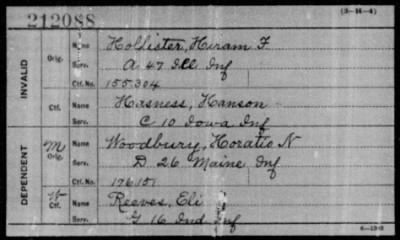 212088
(3—H—4)
INVALID
Orig. Name Hollister, Hiram F.
Serv. A 47 Ill Inf
Ctf. No. 155.304
Ctf. Name Hasness, Hanson
Serv. C 10 Iowa Inf
DEPENDENT
M Orig. Name Woodbury, Horatio N
Serv. D 26 Maine Inf
Ctf. No. 176151
W Ctf. Name Reeves, Eli
Serv. G 16 Ind Inf